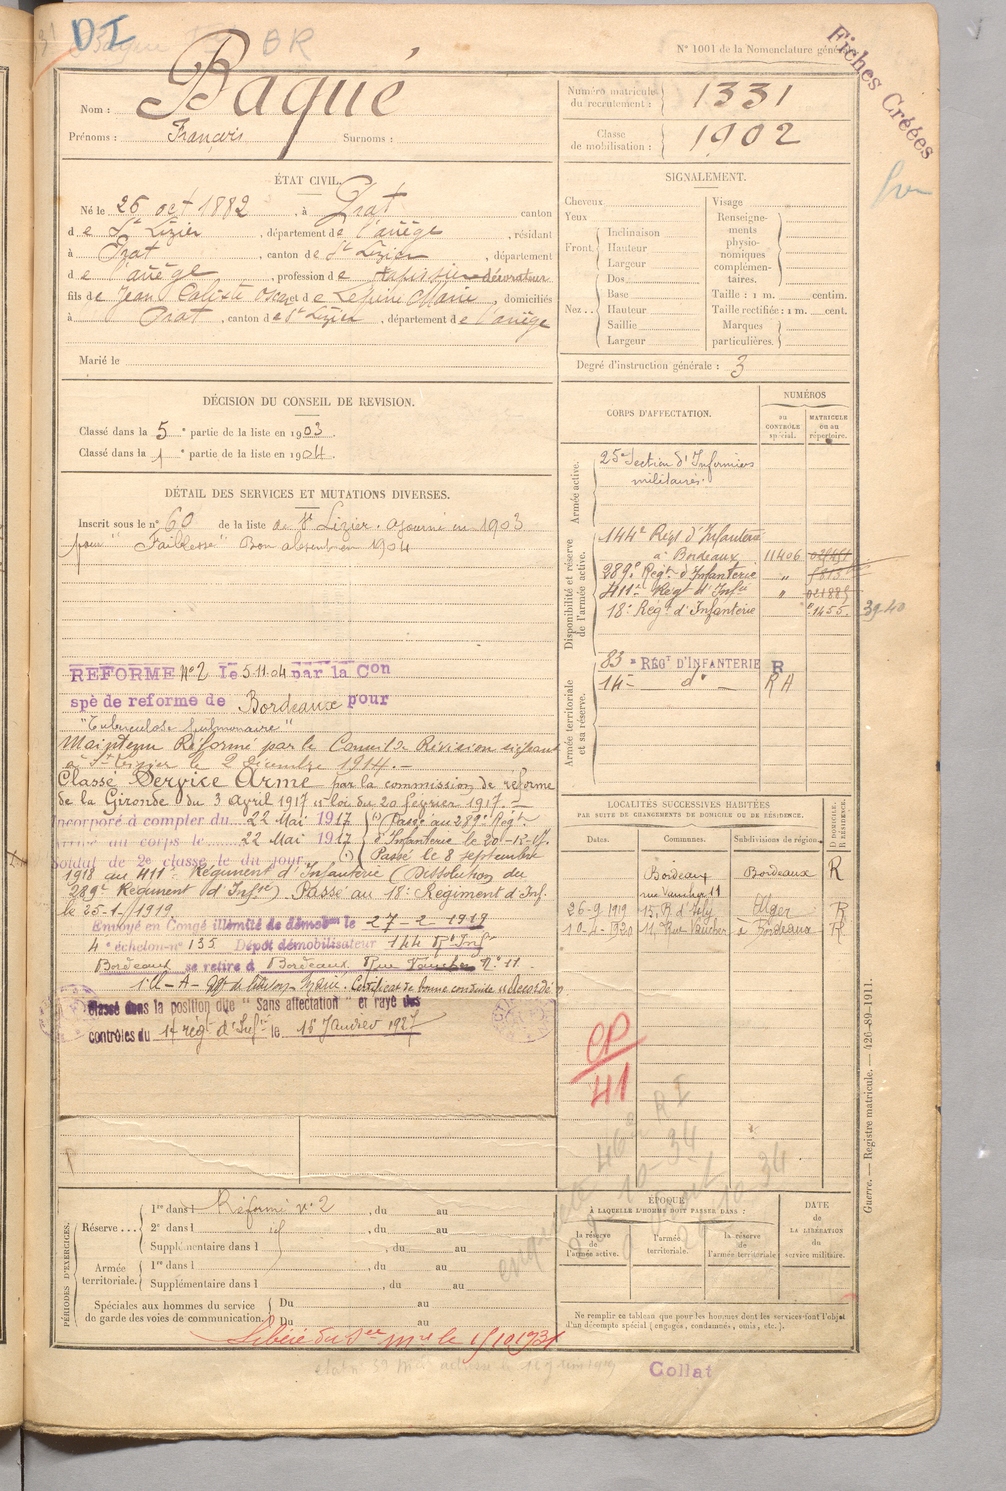 DI
BR
N° 1001 de la Nomenclature génér
Fiches Créées
Nom : Baqué
Prénoms : François Surnoms :
Numéro matricule du recrutement : 1331
Classe de mobilisation : 1902
ÉTAT CIVIL.
Né le 26 oct 1882, à Prat canton
de St Lizier, département de l'ariège, résidant
à Prat, canton de St Lizier, département
de l'ariège, profession de tapissier décorateur
fils de Jean Caliste Oscar et de Marie, domiciliés
à Prat, canton de St Lizier, département de l'ariège
Marié le
SIGNALEMENT.
Cheveux
Yeux
Front. Inclinaison
Hauteur
Largeur
Nez... Dos
Base
Hauteur
Saillie
Largeur
Visage
Renseigne-
ments
physio-
nomiques
complémen-
taires.
Taille : 1 m. centim.
Taille rectifiée : 1 m. cent.
Marques
particulières.
Degré d'instruction générale : 3
DÉCISION DU CONSEIL DE REVISION.
Classé dans la 5e partie de la liste en 1903.
Classé dans la 1e partie de la liste en 1904.
DÉTAIL DES SERVICES ET MUTATIONS DIVERSES.
Inscrit sous le n° 60 de la liste de St Lizier. Ajourné en 1903
pour "Faiblesse" Bon absent en 1904
REFORME N°2 le 5.11.04 par la Con
spè de reforme de Bordeaux pour
"Tuberculose pulmonaire"
Maintenu Réformé par le Conseil de Révision siégeant
à St Lizier le 2 décembre 1914.
Classé Service Armé par la commission de réforme
de la Gironde du 3 avril 1917 loi du 20 février 1917.
Incorporé à compter du 22 Mai 1917 (1) Passé au 289e Régt
Arrivé au corps le 22 Mai 1917 d'Infanterie le
Soldat de 2e classe le du jour (1) Passé le 8 septembre
1918 au 411e Régiment d'Infanterie (Dissolution du
289e Régiment d'Infie). Passé au 18e Régiment d'Inf.
le 25-1-1919
Envoyé en Congé illimité de démobon le 27-2-1919
4e échelon n° 135 Dépôt démobilisateur 144 RtInfie
Bordeaux se retire à Bordeaux Rue Vaucher N° 11
Certificat de bonne conduite "Accordé"
Classé dans la position due "Sans affectation" et rayé des
contrôles du 14 régt d'Infie le 15 Janvier 1927
CORPS D'AFFECTATION.
NUMÉROS
au
CONTRÔLE
spécial.
MATRICULE
ou au
répertoire.
Armée active.
25e Section d'Infirmiers
militaires.
Disponibilité et réserve de l'armée active.
144e Régt d'Infanterie
à Bordeaux 11406
289e Régt d'Infanterie "
411e Régt d'Infie "
18e Régt d'Infanterie 1455 39-40
Armée territoriale et sa réserve.
83e RÉGt D'INFANTERIE R
14e d° RA
LOCALITÉS SUCCESSIVES HABITÉES
PAR SUITE DE CHANGEMENTS DE DOMICILE OU DE RÉSIDENCE.
D. DOMICILE.
R. RÉSIDENCE.
Dates. Communes. Subdivisions de région.
Bordeaux Bordeaux R
rue Vaucher 11
26-9-1919 15, R d'Isly Alger R
10-4-1920 11, Rue Vaucher à Bordeaux R
CP
41
46e RI
10-34
Guerre. — Registre matricule. — 426-89-1911.
PÉRIODES D'EXERCICES.
Réserve... 1re dans l Réformé n°2, du au
2e dans l, du au
Supplémentaire dans l, du au
Armée territoriale. 1re dans l, du au
Supplémentaire dans l, du au
Spéciales aux hommes du service
de garde des voies de communication. Du au
Du au
ÉPOQUE
À LAQUELLE L'HOMME DOIT PASSER DANS :
la réserve
de
l'armée active.
l'armée
territoriale.
la réserve
de
l'armée territoriale
DATE
de
LA LIBÉRATION
du
service militaire.
Ne remplir ce tableau que pour les hommes dont les services font l'objet
d'un décompte spécial (engagés, condamnés, omis, etc.).
Libéré du Sce Mre le 15/10/1931
Collat